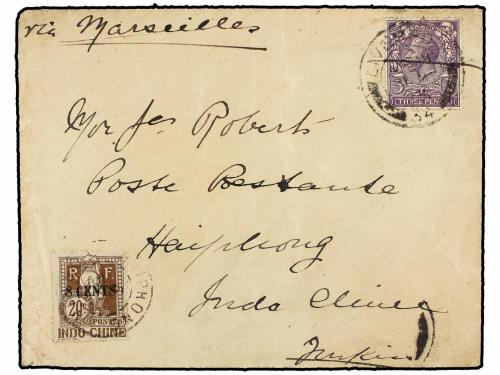 via Marseilles
THREE PEN
34
Mr Jas Roberts
Poste Restante
Haiphong
Indo Chine
Tonkin
R F
8 CENTS
20
POSTES
INDO-CHINE